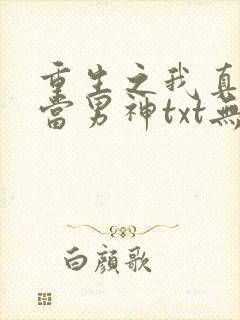 重生之我真
當男神txt無
白顏歌